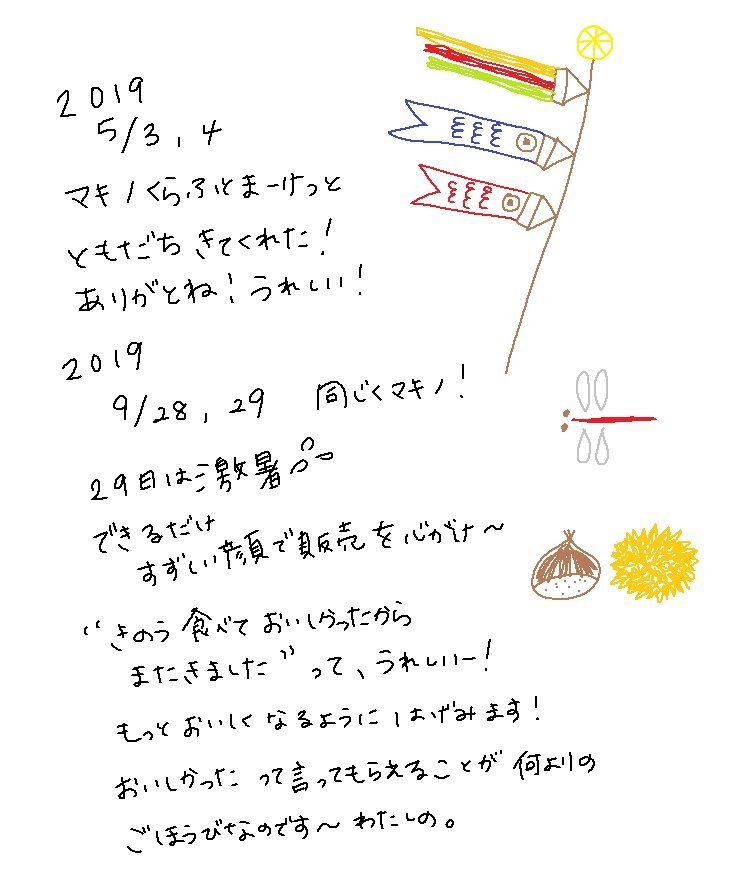 2019
5/3, 4
マキノくらふとまーけっと
ともだち きてくれた!
ありがとね! うれしい!
2019
9/28, 29 同じくマキノ!
29日は激暑
できるだけ
すずしい顔で販売を心がけ〜
“きのう食べておいしかったから
またきました”って、うれしいー!
もっとおいしくなるように はげみます!
おいしかった って言ってもらえることが 何よりの
ごほうびなのです〜 わたしの。